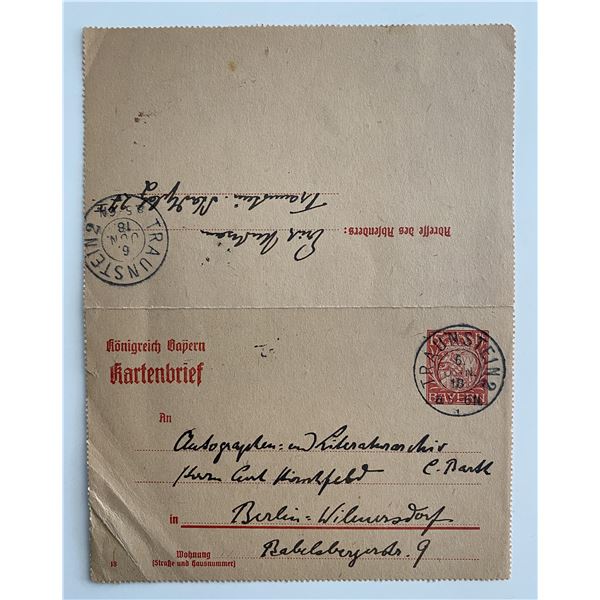 Traunstein. Stadtplatz
Adresse des Absenders: Erich
TRAUNSTEIN 2
6.
JUN.
18
Königreich Bayern
Kartenbrief
TRAUNSTEIN 2
6.
JUN.
18
BAYERN
An
Autographen- und Literaturarchiv
Herrn Curt Hirschfeld C. Barth
in Berlin-Wilmersdorf
Babelsbergerstr. 9
Wohnung
(Straße und Hausnummer)
18